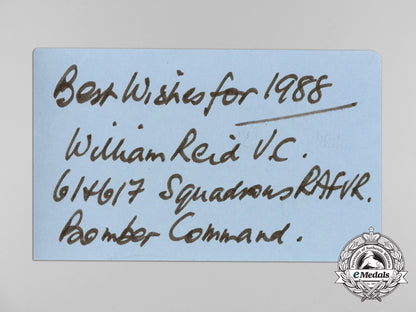 Best Wishes for 1988
William Reid V.C.
61&617 Squadrons RAFVR.
Bomber Command.
eMedals